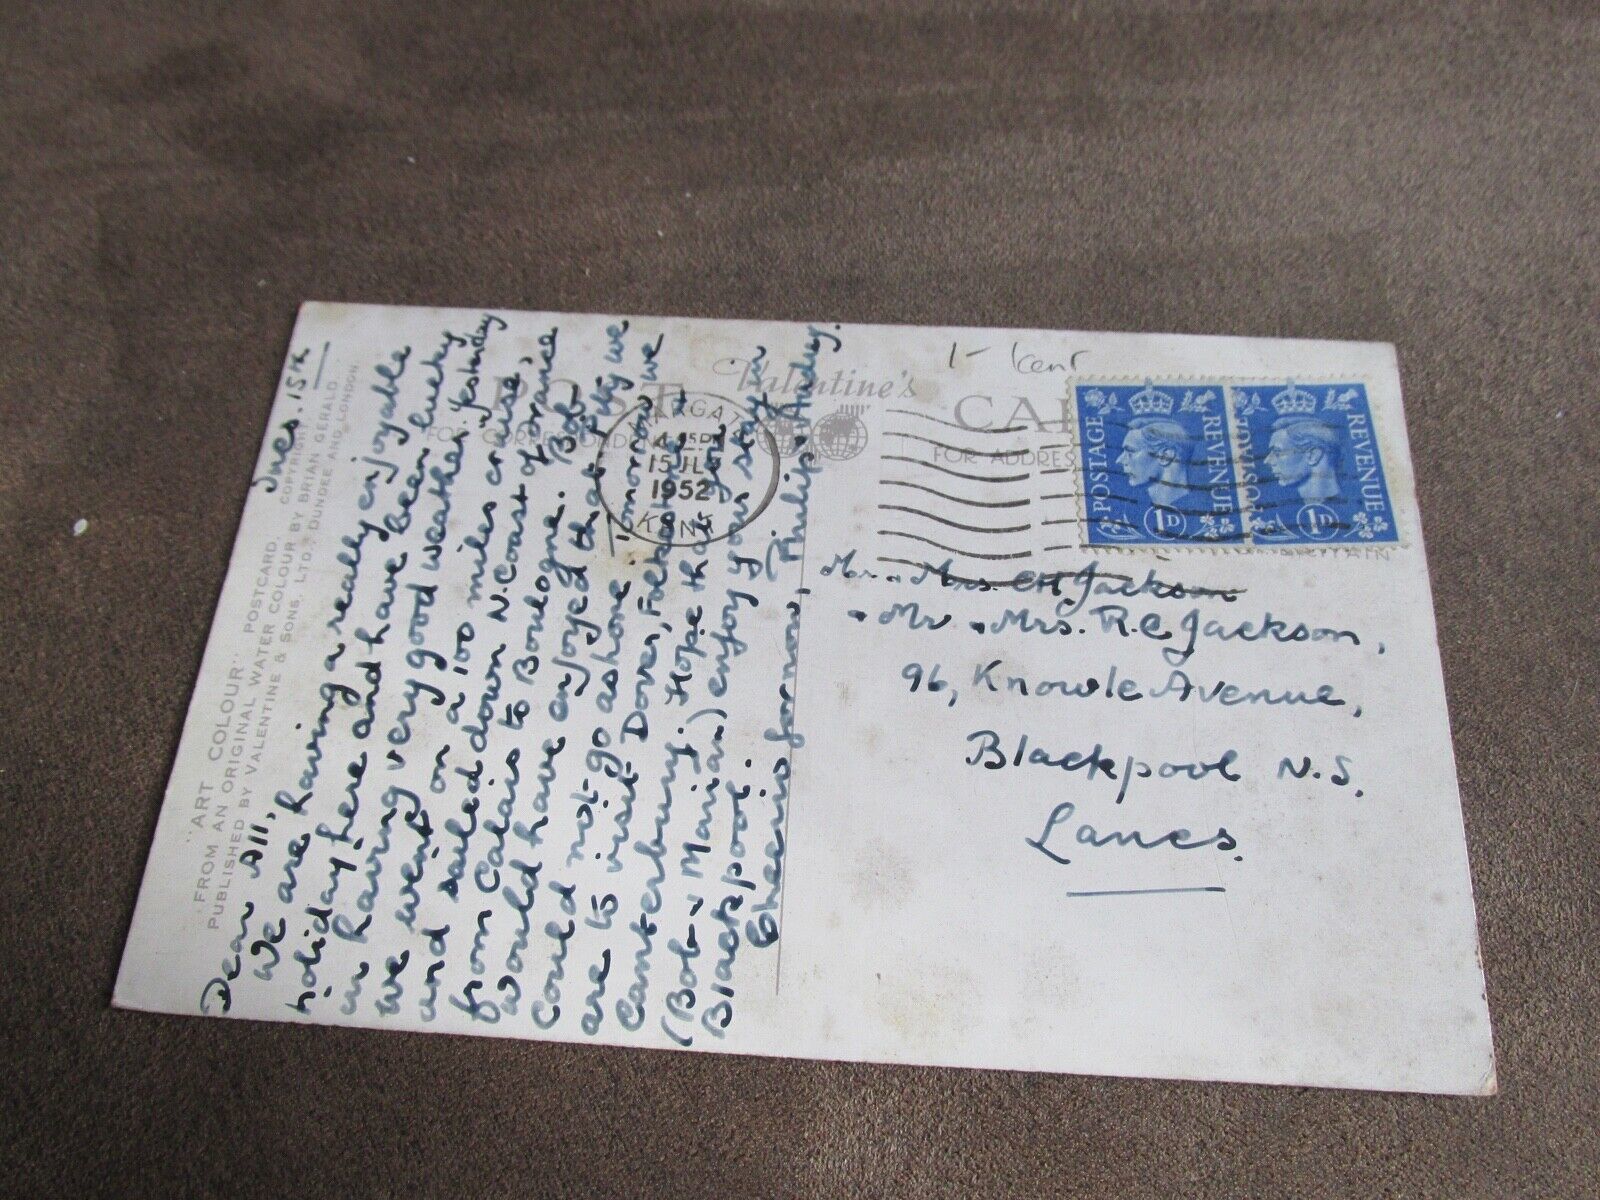 "ART COLOUR" POSTCARD.
FROM AN ORIGINAL WATER COLOUR BY BRIAN GERALD.
PUBLISHED BY VALENTINE & SONS, LTD., DUNDEE AND LONDON
COPYRIGHT
Tues. 15th
Dear All,
We are having a really enjoyable
holiday here and have been lucky
in having very good weather. Yesterday
we went on a 100 miles cruise,
and sailed down N. Coast of France
from Calais to Boulogne. Bob
would have enjoyed that, pity we
could not go ashore. Tomorrow we
are to visit Dover, Folkestone &
Canterbury. Hope that you
(Bob & Marian) enjoy your stay in
Blackpool.
Cheerio for now, Philip & Audrey.
POST Valentine's CARD
FOR ADDRESS
MARGATE
15 JLY
1952
KENT
1- Kent
POSTAGE REVENUE
1D
POSTAGE REVENUE
1D
Mr. & Mrs. C.H. Jackson
& Mr. & Mrs. R.C. Jackson,
96, Knowle Avenue,
Blackpool N.S.
Lancs.